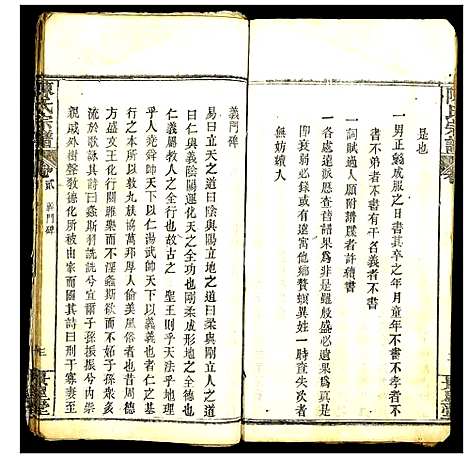 是也
一男正娶成服之日書其卒之年月童年不書不孝者不
書不弟者不書有干名義者不書
一詞賦過人願附譜牒者許續書
一各處遺派歷查舊譜果為非是雖殷盛必遺果為真是
即衰弱必錄或有遠寓他鄉贅螟異姓一時查失次者
無妨續入
義門碑
易曰立天之道曰陰與陽立地之道曰柔與剛立人之道
曰仁與義陰陽運化天之全功也剛柔相濟地之全德也
仁義嚴教人之全行也故古之 聖王則乎天法乎地理
乎人堯舜帥天下以仁湯武帥天下以義義也者仁之基
行之本教以九族協萬邦俾人倫美風俗者也昔周德
方盛文王化行關雎樂而不淫螽斯欲而不妬子孫眾多
流於歌詠其詩曰螽斯羽詵詵兮宜爾子孫振振兮內崇
親戚外樹聲教德化所被由家而國其詩曰刑于寡妻至
陳氏宗譜
卷 貳 義門碑